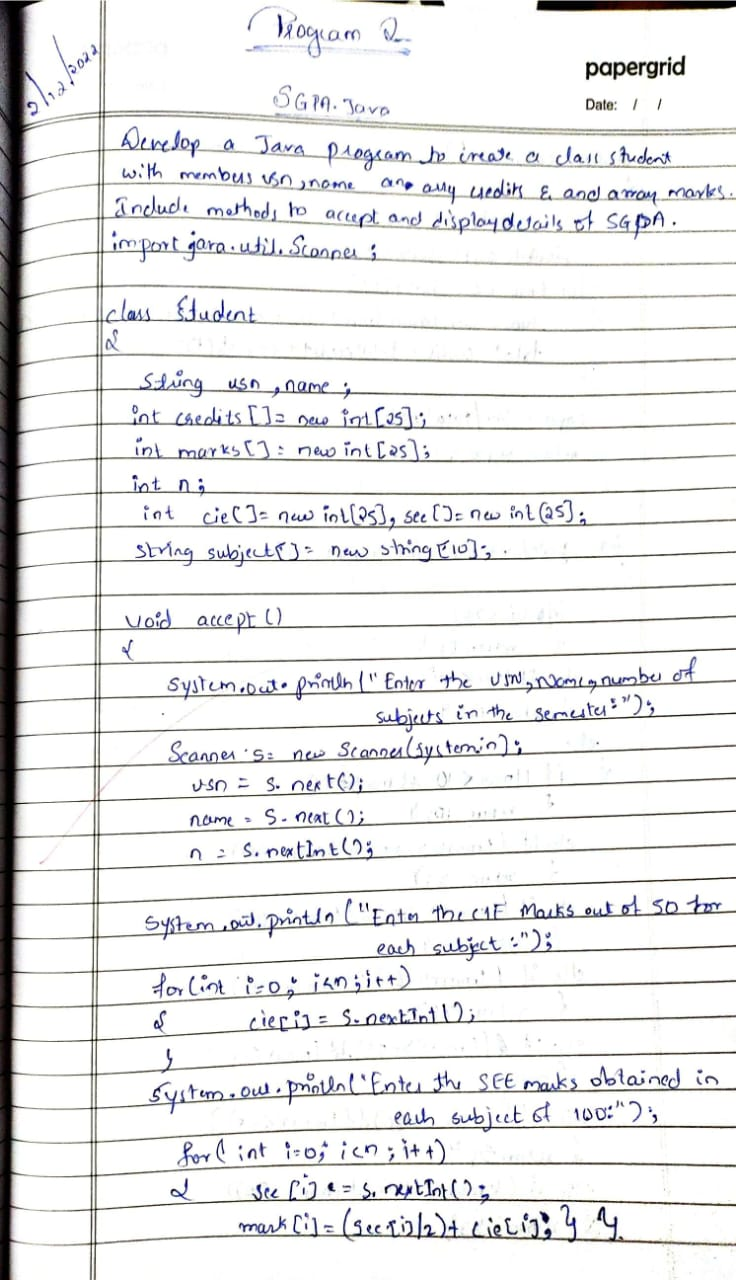 Program 2
2/12/2022
papergrid
Date: / /
SGPA.Java
Develop a Java Program to create a class student
with members usn, name any credits & and array marks.
Include methods to accept and display details of SGPA.
import java.util.Scanner;
class Student
{
String usn, name;
int credits[] = new int[25];
int marks[] = new int[25];
int n;
int cie[] = new int[25], see[] = new int(25];
String subject[] = new string[10];
void accept()
{
System.out.println("Enter the USN, Name, number of
subjects in the semester:");
Scanner s= new Scanner(System.in);
usn = s.next();
name = s.next();
n = s.nextInt();
System.out.println("Enter the CIE Marks out of 50 for
each subject:");
for(int i=0; i<n; i++)
{ cie[i] = s.nextInt();
}
System.out.println('Enter the SEE marks obtained in
each subject of 100:");
for( int i=0; i<n; i++)
{ see[i] = s.nextInt();
mark[i] = (see[i]/2)+ cie[i]; } }